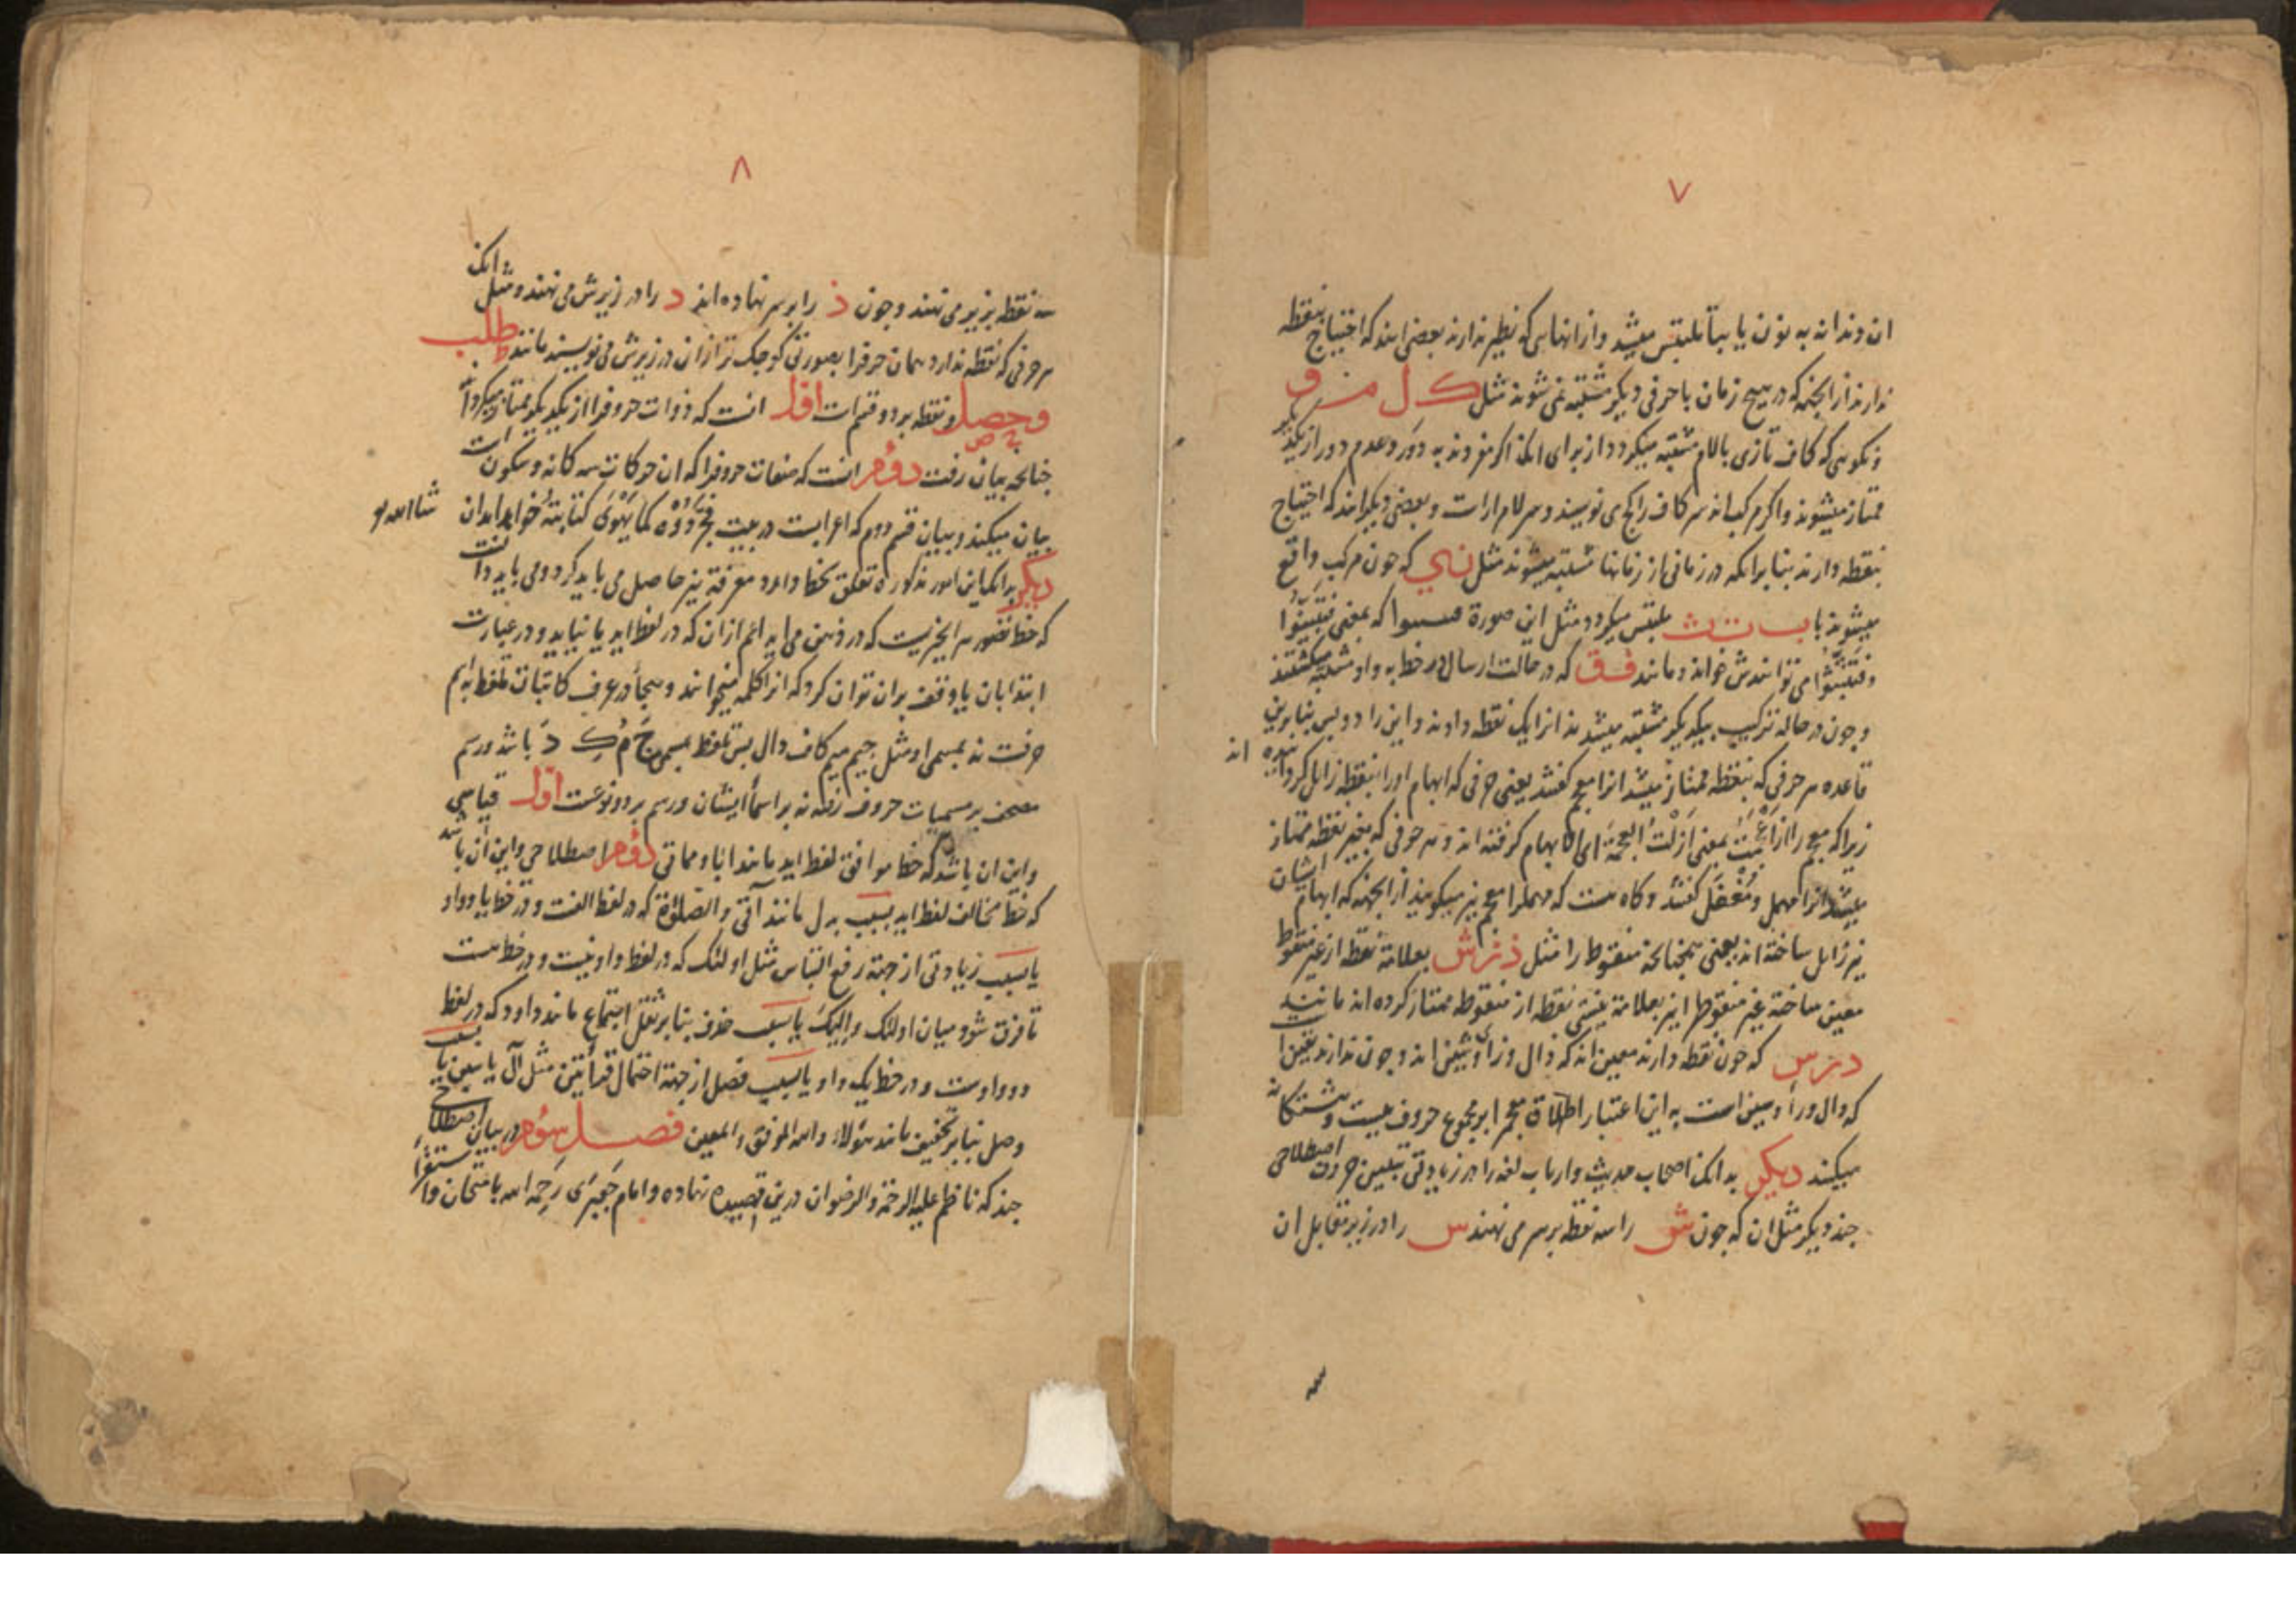 ۷
ان دندانه به نون یا بتا ملتبس میشد و از انهایی که نظیر ندارند بعضی اند که احتیاج بنقطه
ندارند از انجهة که در هیچ زمان با حرفی دیگر مشتبه نمی شوند مثل ک ل م و
و نگویی که کاف تازی بالام مشتبه میگردد از برای انکه اگر مفردند به دور و عدم دور از یکدیگر
ممتاز میشوند و اگر مرکب اند سر کاف را کج می نویسند و سر لام راست و بعضی دیگر اند که احتیاج
بنقطه دارند بنابر انکه در زمانی از زمانها مشتبه میشوند مثل ن ی که چون مرکب واقع
میشوند با ب ت ث ملتبس میگردد مثل این صورة که بمعنی فتبینوا
و فتثبتوا می توانندش خواند و مانند ف ق که در حالت ارسال در خط به واو مشتبه میگشتند
و چون در حاله ترکیب بیکدیگر مشتبه میشدند انرا یک نقطه دادند و این را دو پس بنابرین
قاعده هر حرفی که بنقطه ممتاز میشد انرا معجم گفتند یعنی حرفی که ابهام او را بنقطه زایل گردانیده اند
زیرا که معجم را از اعجمت بمعنی ازلت العجمة ای الابهام گرفته اند و هر حرفی که بغیر نقطه ممتاز
میشد انرا مهمل و مغفل گفتند و گاه هست که مهمل را معجم نیز میگویند از انجهة که ابهام ایشان
نیز زایل ساخته اند یعنی همچنانچه منقوط را مثل ذ ز ش بعلامة نقطه از غیر منقوط
معین ساخته غیر منقوط را نیز بعلامة نیستی نقطه از منقوطه ممتاز کرده اند مانند
د ر س که چون نقطه دارند معین اند که ذال و زاء و شین اند و چون ندارند یقین
که دال و را و سین است به این اعتبار اطلاق معجم بر مجموع حروف بیست و هشتگانه
میکنند دیگر بدانک اصحاب حدیث و ارباب لغه را در زیادتی تبیین حروف اصطلاحی
چند دیگر مثل ان که چون ش را سه نقطه بر سر می نهند س را در زیر مقابل ان
۸
سه نقطه بزیر می نهند و چون ذ را بر سر نهاده اند د را در زیرش می نهند و مثل وانک
هر حرفی که نقطه ندارد همان حرف را بصورتی کوچک تر از ان در زیرش می نویسند مانند ط ل ب
و ح ص ل و نقطه بر دو قسم است اول انست که ذوات حروف را از یکدیگر ممتاز میگرداند
چنانچه بیان رفت دوم انست که صفات حروف را که ان حرکات سه گانه و سکون است
بیان میکند و بیان قسم دوم که اعرابست در بیت کما یهوی کتابته خواهد امد ان شاالله
دیگر بدانکه این امور مذکوره تعلق بخط دارد معرفة نیز حاصل می باید کرد و می باید دانست
که خط تصویر هر چیزیست که در ذهن می اید اعم از ان که در لفظ اید یا نیاید و در عبارت
ابتدا بان یا وقف بران توان کرد که انرا کلمه میخوانند و هجا در عرف کاتبان تلفظ به اسم
حرفست نه بمسمی او مثل جیم میم کاف دال پس تلفظ بمسمی ج م ک د باشد و رسم
مصحف بر مسمیات حروف رفته نه بر اسماء ایشان و رسم بر دو نوعست اول قیاسی
و این ان باشد که خط موافق لفظ اید مانند ایا و مماتی دوم اصطلاحی و این ان باشد
که خط مخالف لفظ اید بسبب بدل مانند آتی و الصلوة که در لفظ الفست و در خط یا و واو
یا بسبب زیادتی از جهة رفع التباس مثل اولئک که در لفظ واو نیست و در خط هست
تا فرق شود میان اولئک و الیک یا بسبب حذف بنابر ثقل اجتماع مانند داود که در لفظ
دو واوست و در خط یک واو یا بسبب فصل از جهة احتمال قرائتین مثل آل یاسین یا بسبب
وصل بنابر تخفیف مانند هؤلاء والله الموفق والمعین فصل سوم در بیان اصطلاحی
چند که ناظم علیه الرحمة والرضوان درین قصیده نهاده و امام جعبری رحمه الله بامتحان و استقراء